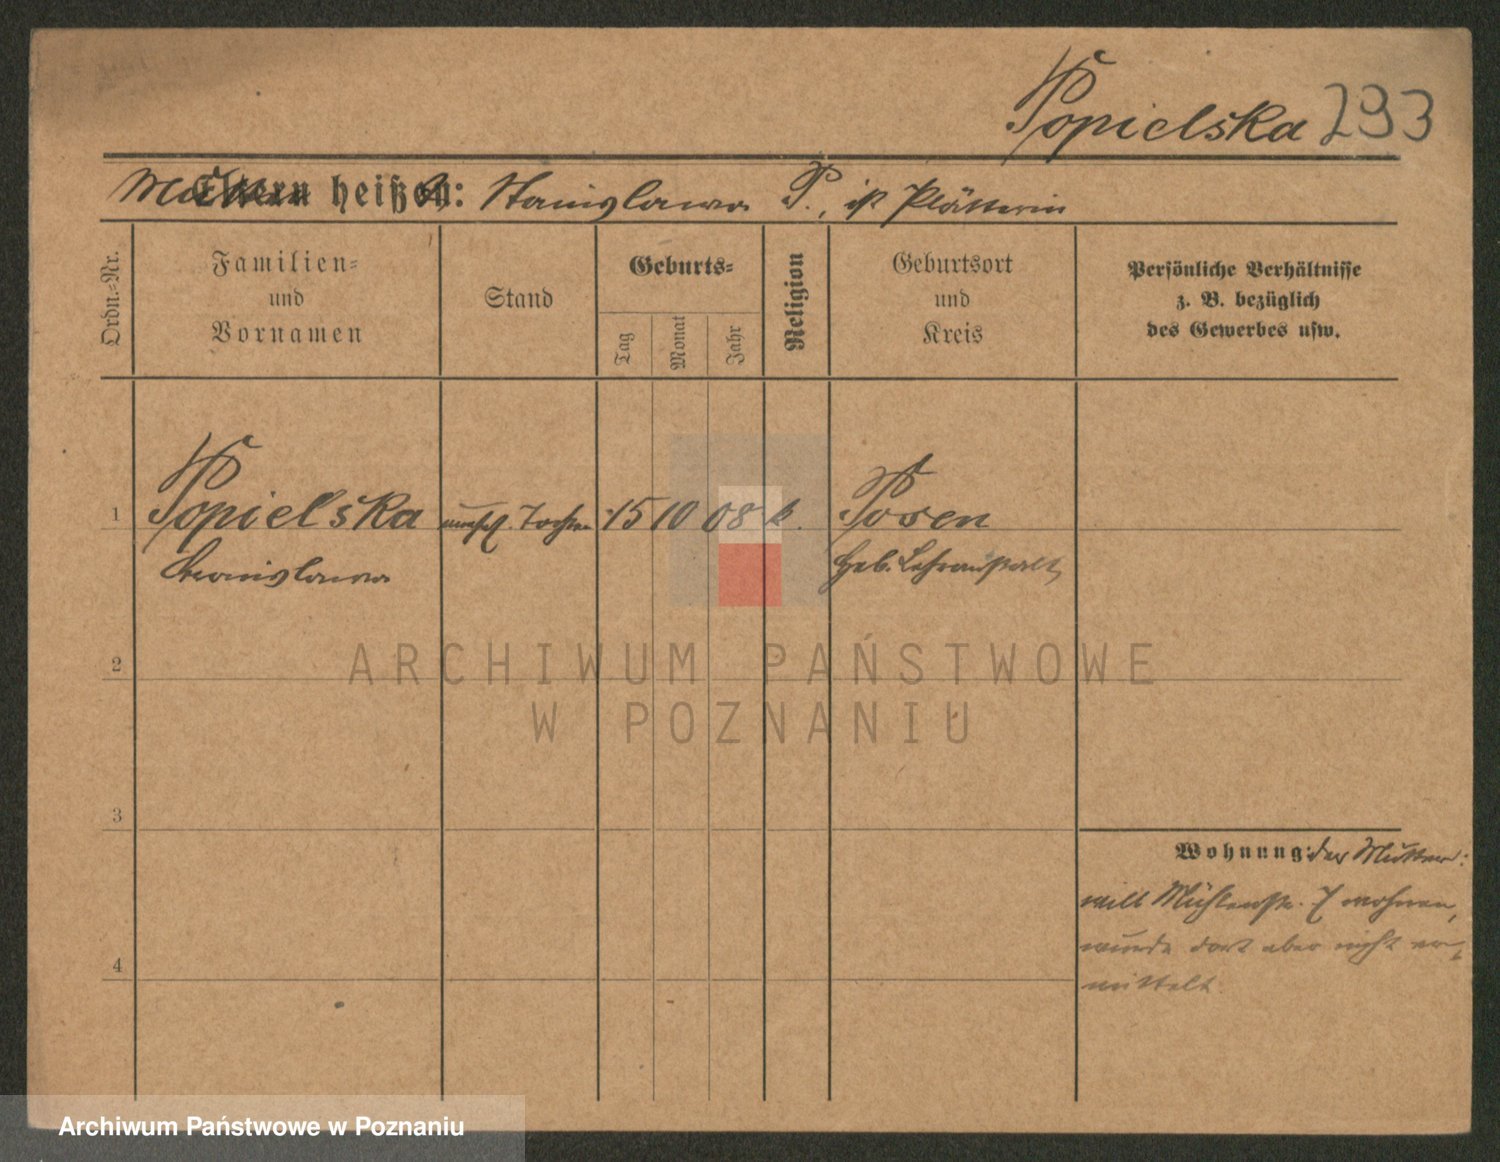 Popielska 293
Mutter heißt: Stanislawa P., ist Plätterin
Ordn.-Nr.
Familien-
und
Vornamen
Stand
Geburts-
Tag
Monat
Jahr
Religion
Geburtsort
und
Kreis
Persönliche Verhältnisse
z. B. bezüglich
des Gewerbes usw.
1 Popielska unehel. Tochter 15 10 08 k. Posen
Stanislawa Heb. Lehranstalt
2
3
4
Wohnung: der Mutter:
will Mühlenstr. 7 wohnen,
wurde dort aber nicht er-
mittelt.
ARCHIWUM PAŃSTWOWE
W POZNANIU
Archiwum Państwowe w Poznaniu